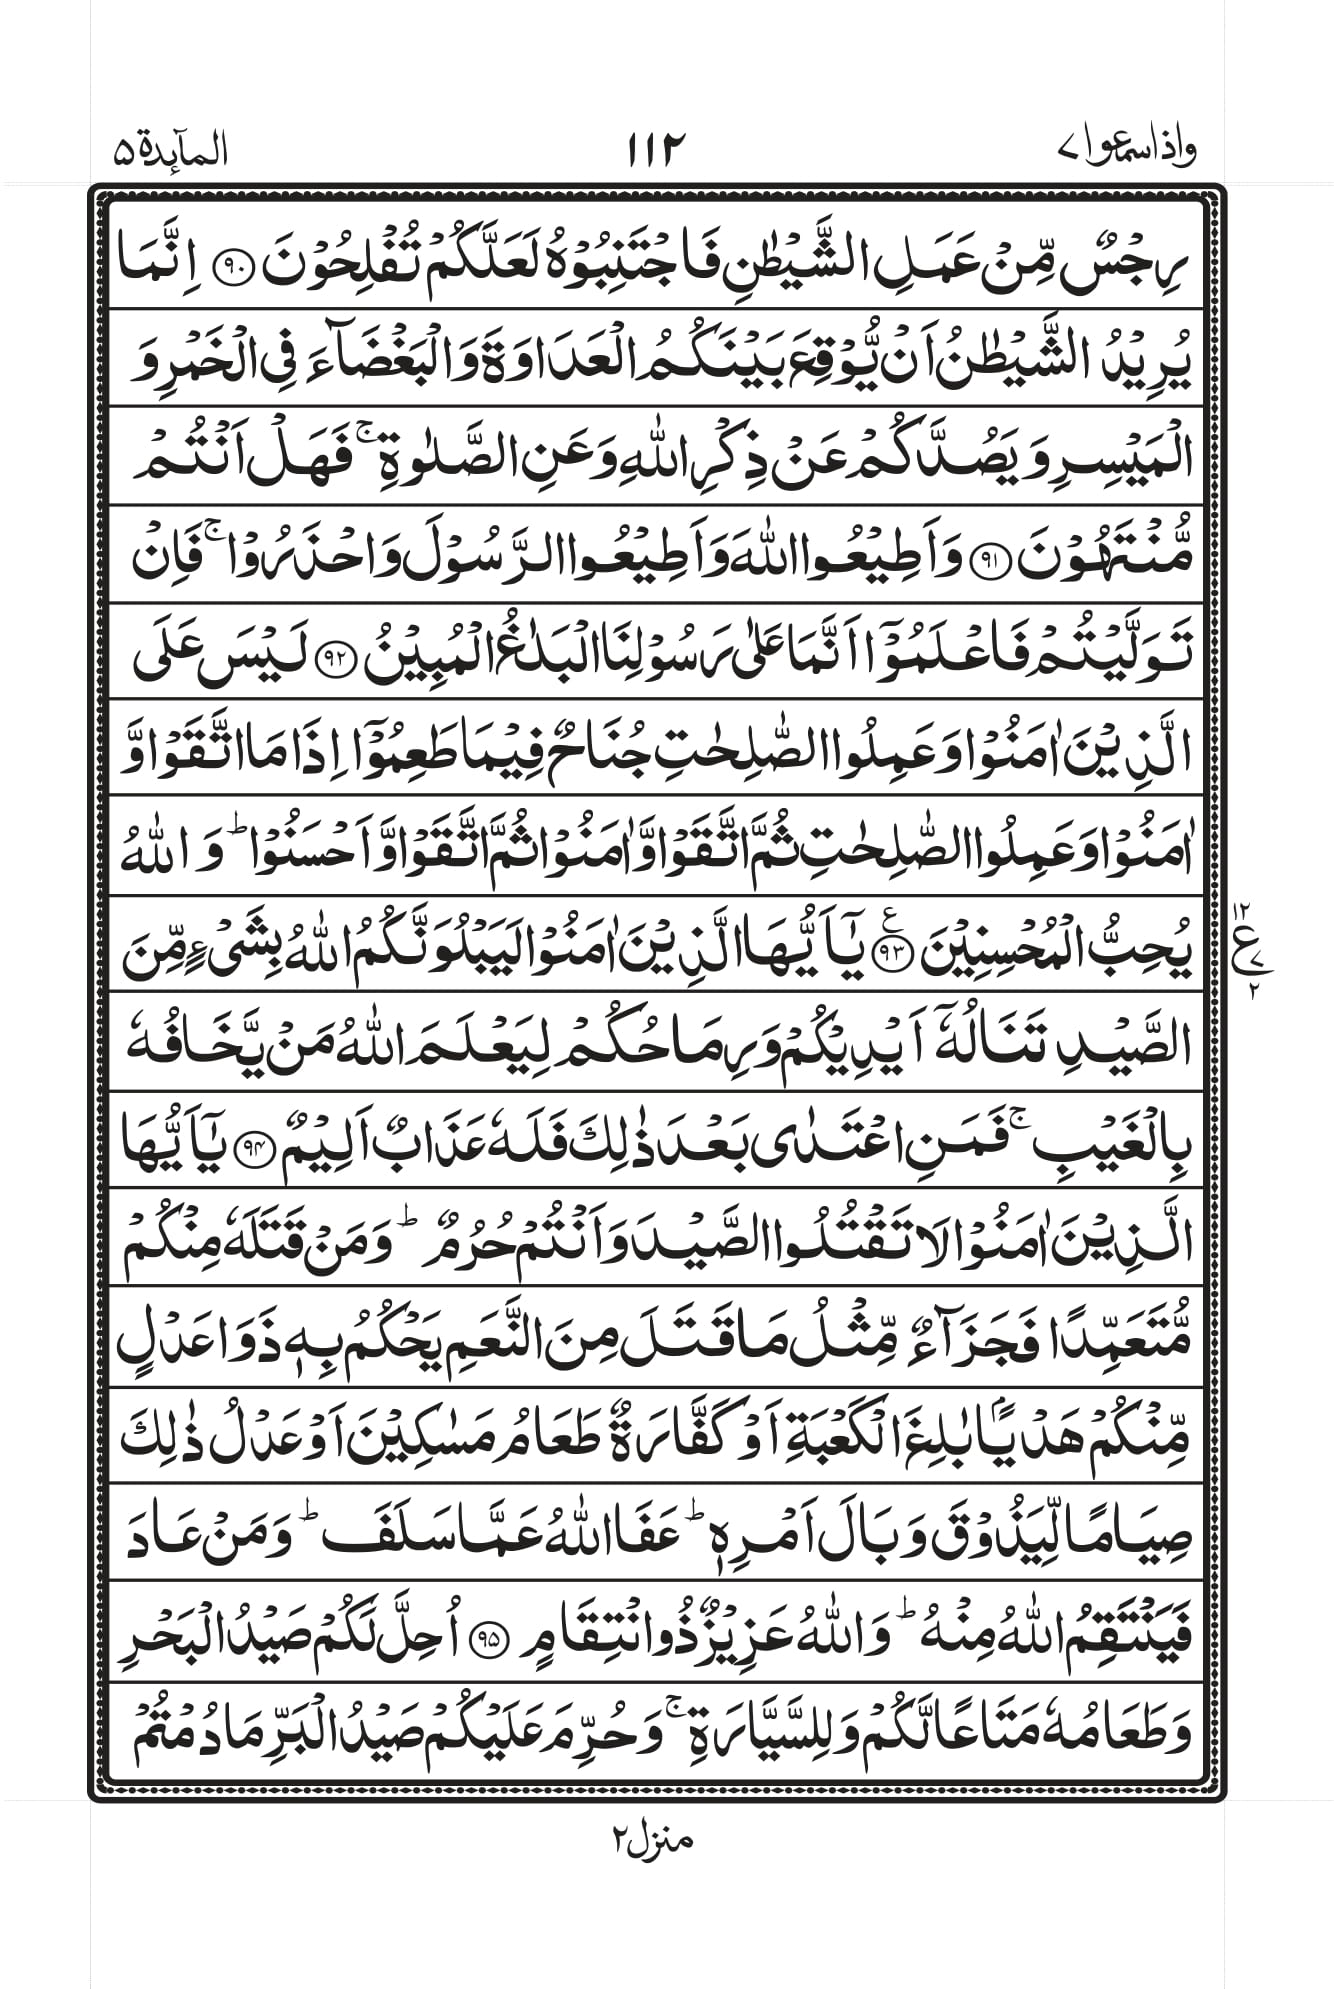 واذاسمعوا ٧
١١٢
المآىِٕدة ۵
رِجْسٌ مِّنْ عَمَلِ الشَّيْطٰنِ فَاجْتَنِبُوْهُ لَعَلَّكُمْ تُفْلِحُوْنَ ﴿۹۰﴾ اِنَّمَا
يُرِيْدُ الشَّيْطٰنُ اَنْ يُّوْقِعَ بَيْنَكُمُ الْعَدَاوَةَ وَالْبَغْضَآءَ فِى الْخَمْرِ وَ
الْمَيْسِرِ وَيَصُدَّكُمْ عَنْ ذِكْرِ اللّٰهِ وَعَنِ الصَّلٰوةِ ۚ فَهَلْ اَنْتُمْ
مُّنْتَهُوْنَ ﴿۹۱﴾ وَاَطِيْعُوا اللّٰهَ وَاَطِيْعُوا الرَّسُوْلَ وَاحْذَرُوْا ۚ فَاِنْ
تَوَلَّيْتُمْ فَاعْلَمُوْۤا اَنَّمَا عَلٰى رَسُوْلِنَا الْبَلٰغُ الْمُبِيْنُ ﴿۹۲﴾ لَيْسَ عَلَى
الَّذِيْنَ اٰمَنُوْا وَعَمِلُوا الصّٰلِحٰتِ جُنَاحٌ فِيْمَا طَعِمُوْۤا اِذَا مَا اتَّقَوْا وَّ
اٰمَنُوْا وَعَمِلُوا الصّٰلِحٰتِ ثُمَّ اتَّقَوْا وَّاٰمَنُوْا ثُمَّ اتَّقَوْا وَّاَحْسَنُوْا ؕ وَاللّٰهُ
يُحِبُّ الْمُحْسِنِيْنَ ﴿۹۳﴾ ع يٰۤاَيُّهَا الَّذِيْنَ اٰمَنُوْا لَيَبْلُوَنَّكُمُ اللّٰهُ بِشَىْءٍ مِّنَ
١٢
ع ٧
٢
الصَّيْدِ تَنَالُهٗۤ اَيْدِيْكُمْ وَرِمَاحُكُمْ لِيَعْلَمَ اللّٰهُ مَنْ يَّخَافُهٗ
بِالْغَيْبِ ۚ فَمَنِ اعْتَدٰى بَعْدَ ذٰلِكَ فَلَهٗ عَذَابٌ اَلِيْمٌ ﴿۹۴﴾ يٰۤاَيُّهَا
الَّذِيْنَ اٰمَنُوْا لَا تَقْتُلُوا الصَّيْدَ وَاَنْتُمْ حُرُمٌ ؕ وَمَنْ قَتَلَهٗ مِنْكُمْ
مُّتَعَمِّدًا فَجَزَآءٌ مِّثْلُ مَا قَتَلَ مِنَ النَّعَمِ يَحْكُمُ بِهٖ ذَوَا عَدْلٍ
مِّنْكُمْ هَدْيًۢا بٰلِغَ الْكَعْبَةِ اَوْ كَفَّارَةٌ طَعَامُ مَسٰكِيْنَ اَوْ عَدْلُ ذٰلِكَ
صِيَامًا لِّيَذُوْقَ وَبَالَ اَمْرِهٖ ؕ عَفَا اللّٰهُ عَمَّا سَلَفَ ؕ وَمَنْ عَادَ
فَيَنْتَقِمُ اللّٰهُ مِنْهُ ؕ وَاللّٰهُ عَزِيْزٌ ذُو انْتِقَامٍ ﴿۹۵﴾ اُحِلَّ لَكُمْ صَيْدُ الْبَحْرِ
وَطَعَامُهٗ مَتَاعًا لَّكُمْ وَلِلسَّيَّارَةِ ۚ وَحُرِّمَ عَلَيْكُمْ صَيْدُ الْبَرِّ مَا دُمْتُمْ
منزل ٢